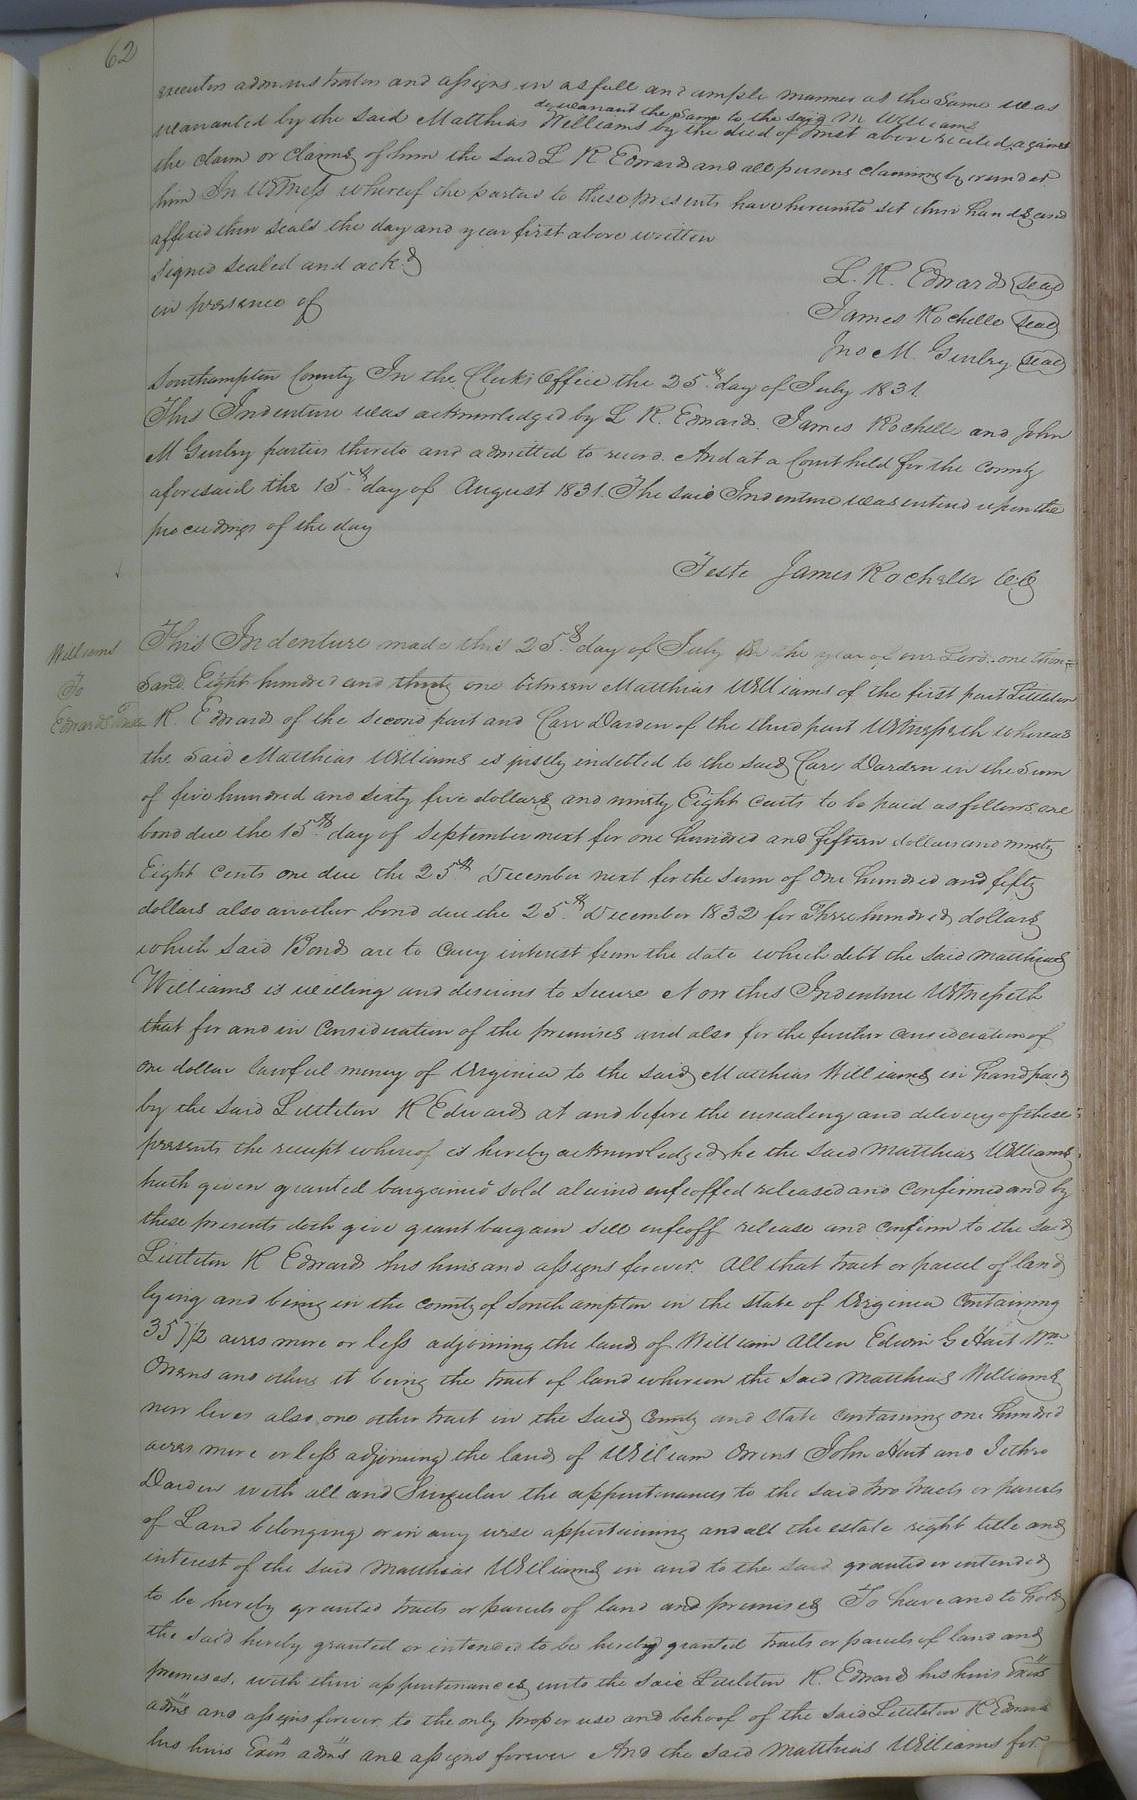 62
executors administrators and assigns in as full and ample manner as the same was
do warrant the same to the said M Williams
warranted by the said Matthias Williams by the deed of trust above recited, against
the claim or claims of him the said L R Edwards and all persons claiming by or under
him In Witness whereof the parties to these presents have hereunto set their hands and
affixed their seals the day and year first above written
Signed sealed and ackd
in presence of
L. R. Edwards seal
James Rochelle seal
Jno M. Gurley seal
Southampton County In the Clerks Office the 25th day of July 1831.
This Indenture was acknowledged by L R. Edwards. James Rochelle and John
M Gurley parties thereto and admitted to record. And at a Court held for the County
aforesaid the 15th day of August 1831. The said Indenture was entered upon the
proceedings of the day
Teste James Rochelle CC
Williams
To
Edwards Trustee
This Indenture made this 25th day of July in the year of our Lord one thou=
sand Eight hundred and thirty one between Matthias Williams of the first part Littleton
R. Edwards of the second part and Carr Darden of the third part Witnesseth whereas
the said Matthias Williams is justly indebted to the said Carr Darden in the sum
of five hundred and sixty five dollars and ninety Eight cents to be paid as follows, one
bond due the 15th day of September next for one hundred and fifteen dollars and ninety
Eight cents one due the 25th December next for the sum of One hundred and fifty
dollars also another bond due the 25th December 1832 for Three hundred dollars
which said Bonds are to carry interest from the date which debt the said Matthias
Williams is willing and desirous to secure Now this Indenture Witnesseth
that for and in Consideration of the premises and also for the further consideration of
one dollar lawful money of Virginia to the said Matthias Williams in hand paid
by the said Littleton R Edwards at and before the ensealing and delivery of these
presents the receipt whereof is hereby acknowledged, he the said Matthias Williams
hath given granted bargained sold aliend enfeoffed released and confirmed and by
these presents doth give grant bargain sell enfeoff release and confirm to the said
Littleton R Edwards his heirs and assigns forever. All that tract or parcel of land
lying and being in the county of Southampton in the state of Virginia Containing
357 1/2 acres more or less adjoining the lands of William Allen Edwin G Hart Wm
Owens and others it being the tract of land whereon the said Matthias Williams
now lives also, one other tract in the said County and State containing one hundred
acres more or less adjoining the lands of William Owens John Hart and Jethro
Darden with all and Singular the appurtenances to the said two tracts or parcels
of Land belonging or in any wise appertaining and all the estate right title and
interest of the said Matthias Williams in and to the said granted or intended
to be hereby granted tracts or parcels of land and premises To have and to hold
the said hereby granted or intended to be hereby granted tracts or parcels of land and
premises, with their appurtenances unto the said Littleton R. Edwards his heirs Exors
adms and assigns forever to the only proper use and behoof of the said Littleton R Edwards
his heirs Exors adms and assigns forever And the said Matthias Williams for